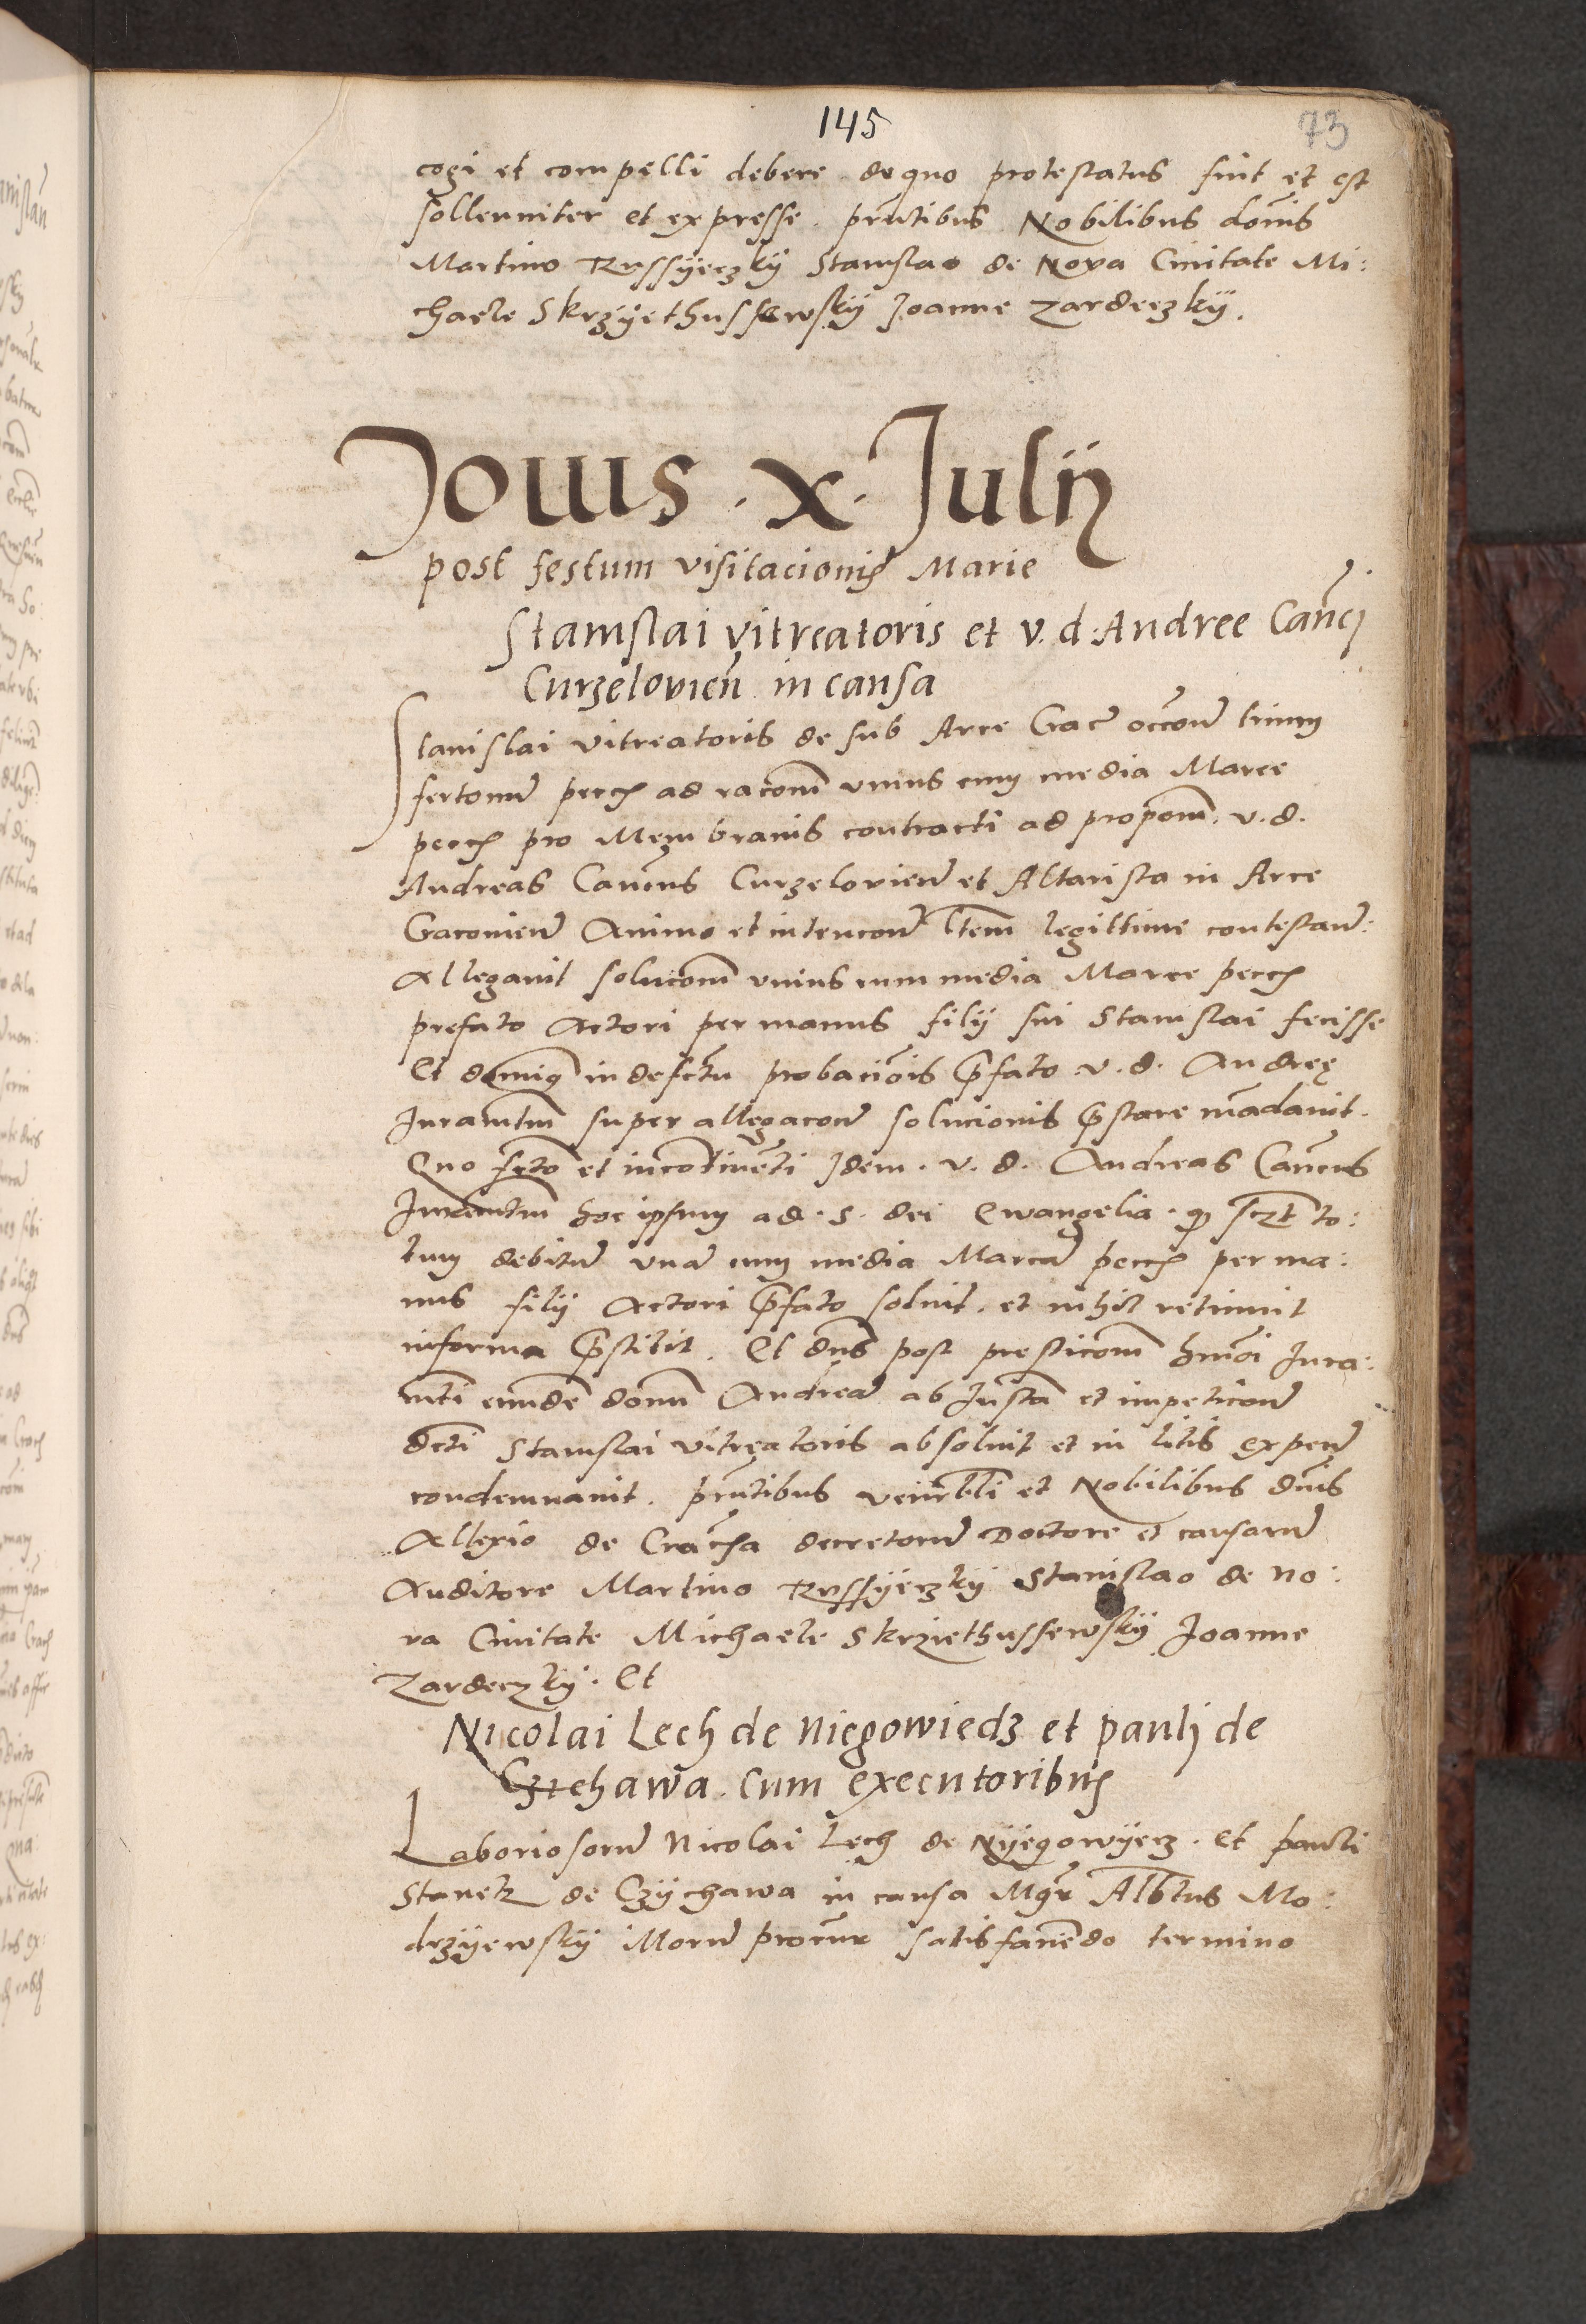 145
73
cogi et compelli debere de quo protestatus fuit et est
sollenniter et expresse. pñtibus Nobilibus domĩs
Martino Russyeczky Stanislao de Nova Civitate Mi:
chaele Skrzyethussewsky Joanne Zardeczky.
Jovis . X. Julij
post festum visitacionis Marie
Stanislai vitreatoris et v. d. Andree Canõci
Curzelovien̄ in causa
Stanislai vitreatoris de sub Arce Crac̄ occoñe trium
fertonũ pecc̄ ad racoñm unius cum media Marce
pecc̄ pro Membranis contracti ad proposm̄. v. d.
Andreas Canõcus Curzelovien̄ et Altarista in Arce
Cracovien̄ Animo et intencoñe ltem̄ legittime contestan̄:
Allegavit solucoñm unius cum media Marce pecc̄
prefato Actori per manus filij sui Stanislai fecisse
Et dominꝰ in defectu probaciõis p̃fato v. d. Andreę
Juramtm̄ super allegacoñe solucionis p̃stare mãdavit.
Quo fcto et incotinẽti Idem . v. d. Andreas Canõcus
Juramtm̄ hoc ipsum ad . S. dei Ewangelia . qꝫ sczt to:
tum debitũ unã cum media Marcã pecc̄ per ma:
nus filij Actori p̃fato solvit. et nihil retinuit
in forma p̃stitit. Et dñs post presticoñm hmõi Jura:
mti eundẽ domũ Andreã ab Jnstã et impeticoñe
dcti Stanislai vitreatoris absolvit et in litis expen̄
condemnavit. pñtibus venerbli et Nobilibus dñis
Allexio de decretorũ Doctore et causarũ
Auditore Martino Russyeczky Stanislao de No:
va Civitate Michaele Skrziethussewsky Joanne
Zardeczky. Et
Nicolai Lech de Niegowiedz et pauli de
Czichawa. cum executoribus
Laboriosorũ Nicolai Lech de Nyegowyecz. et pauli
Stanek de Czychawa in causa Mgr Albtus Mo:
drzyewsky illorũ procur̃ satisfaciẽdo termino